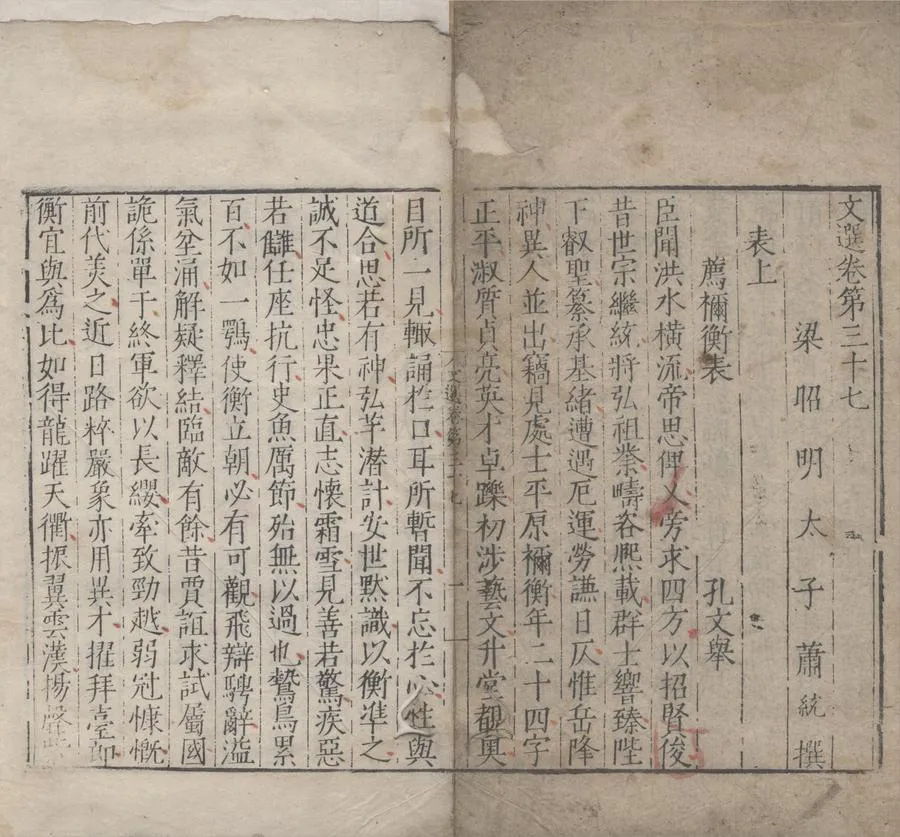 文選卷第三十七
梁昭明太子蕭統撰
表上
薦禰衡表 孔文舉
臣聞洪水橫流帝思俾乂旁求四方以招賢俊
昔世宗繼統將弘祖業疇咨熙載群士響臻陛
下叡聖纂承基緒遭遇厄運勞謙日仄惟岳降
神異人並出竊見處士平原禰衡年二十四字
正平淑質貞亮英才卓躒初涉藝文升堂覩奧
目所一見輙誦於口耳所暫聞不忘於心性與
道合思若有神弘羊潛計安世默識以衡準之
誠不足怪忠果正直志懷霜雪見善若驚疾惡
若讎任座抗行史魚厲節殆無以過也鷙鳥累
百不如一鶚使衡立朝必有可觀飛辯騁辭溢
氣坌涌解疑釋結臨敵有餘昔賈誼求試屬國
詭係單于終軍欲以長纓牽致勁越弱冠慷慨
前代美之近日路粹嚴象亦用異才擢拜臺郎
衡宜與爲比如得龍躍天衢振翼雲漢揚聲紫
文選卷第三十七 一